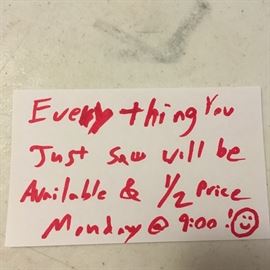 Everything You
Just saw will be
Available & 1/2 Price
Monday @ 9:00!